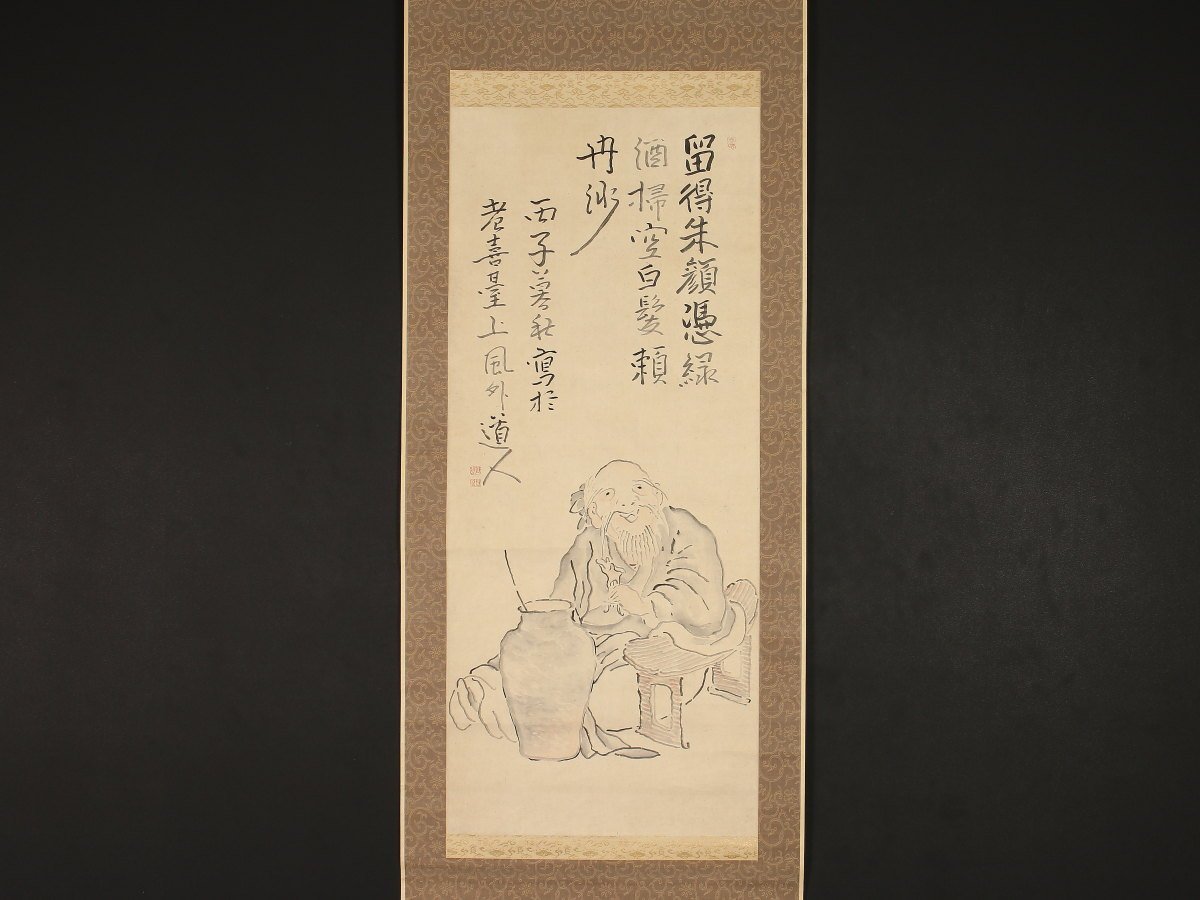 留得朱顔憑緑
酒掃空白髪頼
丹砂
丙子暮秋寫於
老喜臺上風外道人